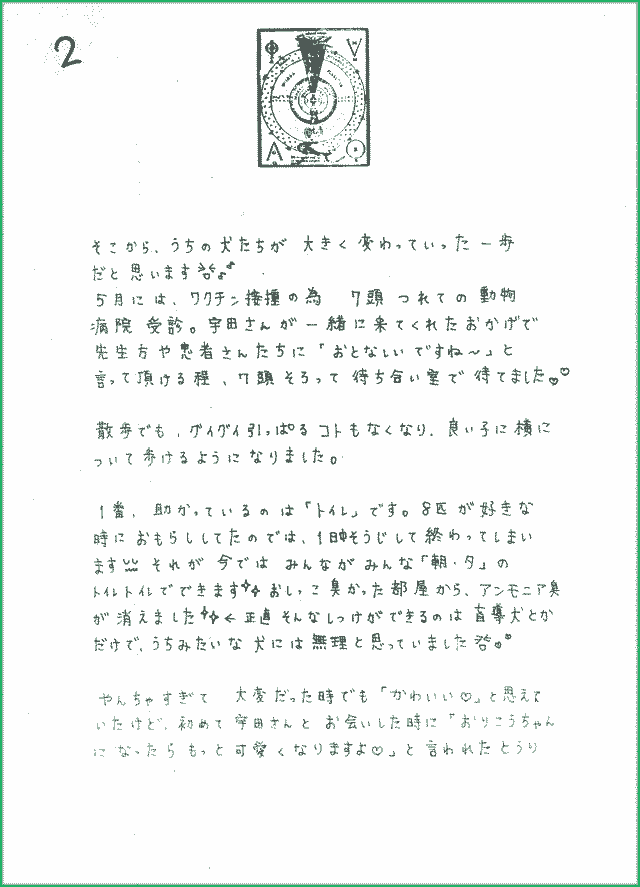 2
そこから、うちの犬たちが 大きく変わっていった 一歩
だと思います
5月には、ワクチン接種の為 7頭 つれての 動物
病院 受診。宇田さんが 一緒に来てくれたおかげで
先生方や患者さんたちに「おとなしいですね〜」と
言って頂ける程、7頭 そろって 待ち合い室で 待てました。♡
散歩でも、グイグイ引っぱるコトもなくなり、良い子に横に
ついて歩けるようになりました。
1番、助かっているのは「トイレ」です。8匹が好きな
時に おもらししてたのでは、1日中そうじして終わってしまい
ます それが 今では みんながみんな「朝・夕」の
トイレトイレでできます おしっこ臭かった部屋から、アンモニア臭
が消えました ← 正直そんなしつけができるのは 盲導犬とか
だけで、うちみたいな 犬には 無理と思っていました
やんちゃすぎて 大変だった時でも「かわいい♡」と思えて
いたけど、初めて 宇田さんと お会いした時に「おりこうちゃん
に なったら もっと 可愛くなりますよ♡」と 言われたとうり